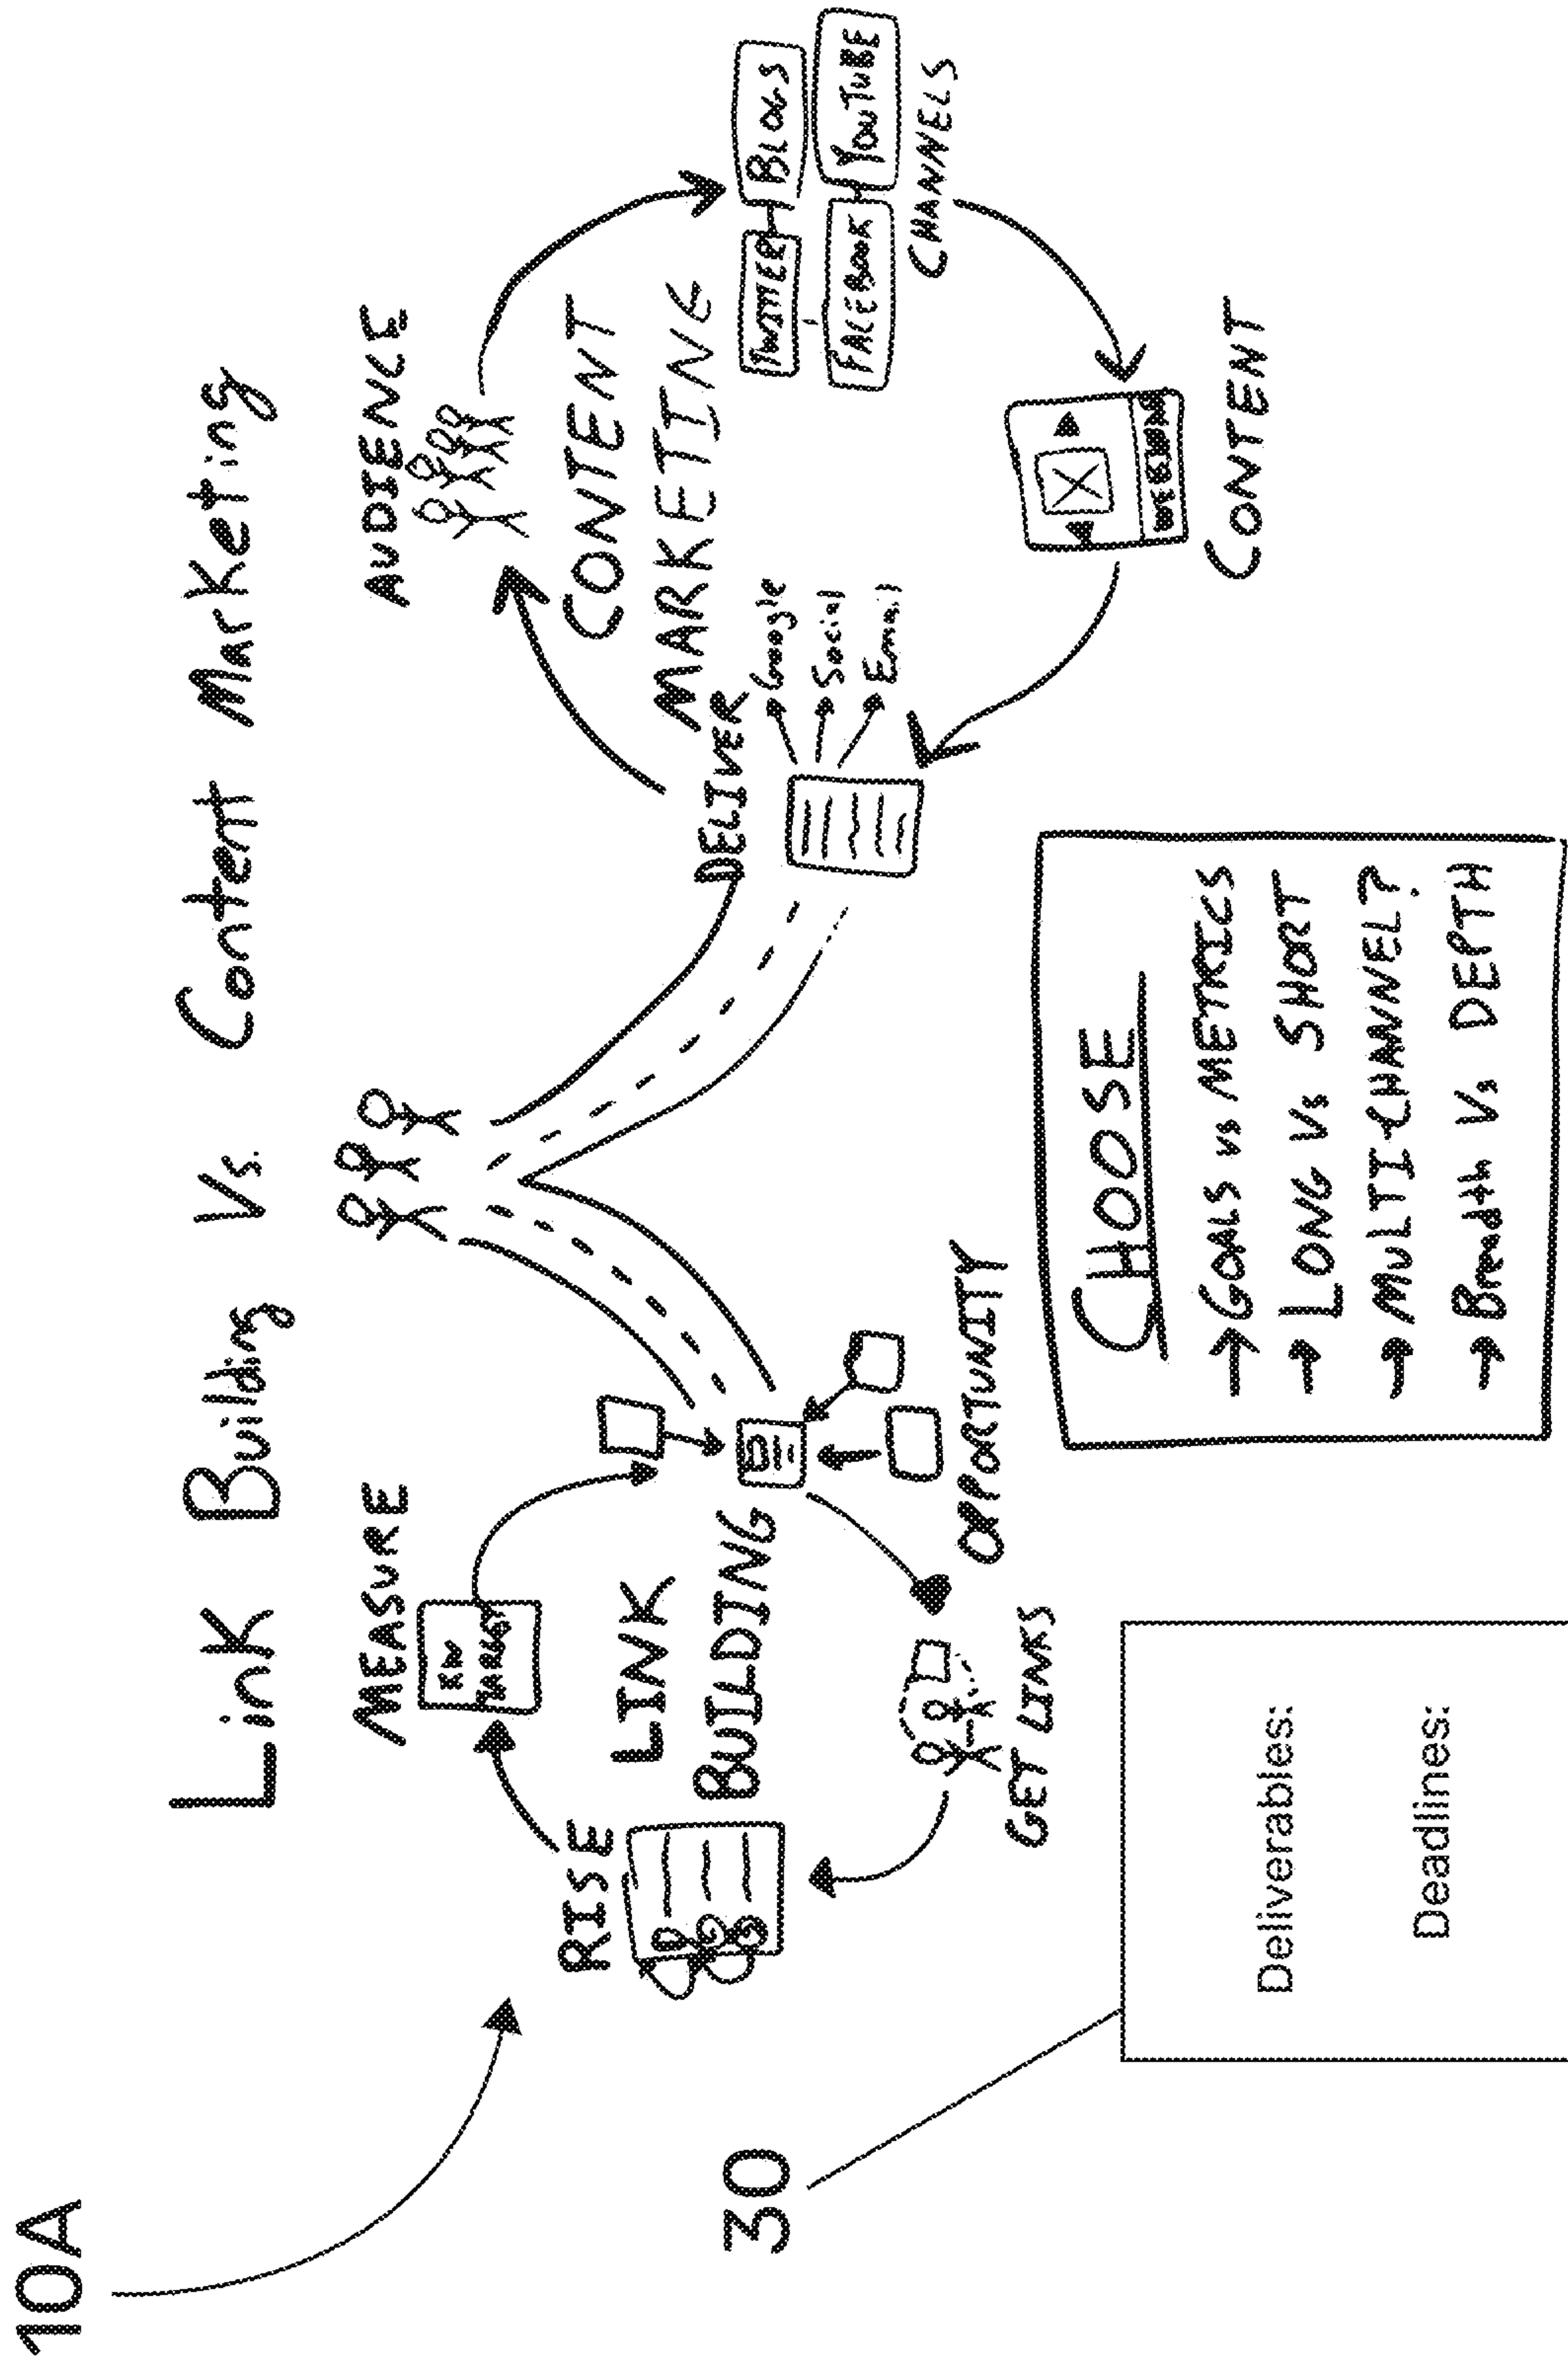 10A
Link Building Vs. Content Marketing
MEASURE
KW
TARGET
RISE
LINK
BUILDING
GET LINKS
OPPORTUNITY
AUDIENCE
CONTENT
MARKETING
DELIVER
Google
Social
Email
TWITTER
BLOGS
FACEBOOK
YOUTUBE
CHANNELS
CONTENT
30
Deliverables:
Deadlines:
CHOOSE
GOALS vs METRICS
LONG Vs SHORT
MULTI-CHANNEL?
Breadth Vs DEPTH